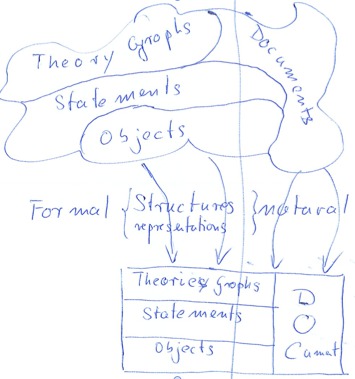 Theory Graphs
Documents
Statements
Objects
Formal { Structures } notaral
representations
Theories Graphs
Statements
Objects
D
O
Cumat